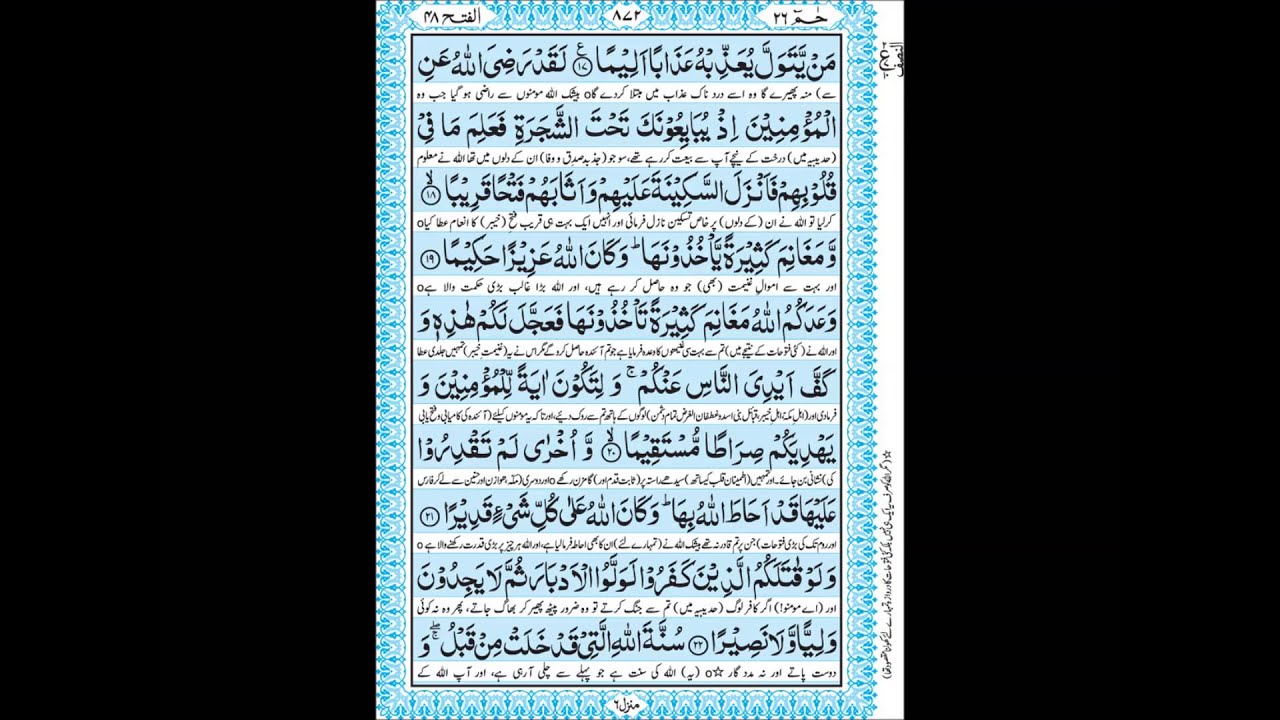 حٰمٓ ٢٦
٨٧٢
الفتح ٤٨
النصف
مَنْ يَّتَوَلَّ يُعَذِّبْهُ عَذَابًا اَلِيْمًا ﴿١٧﴾ ع لَقَدْ رَضِیَ اللّٰهُ عَنِ
سے) منہ پھیرے گا وہ اسے درد ناک عذاب میں مبتلا کردے گاo بیشک اللہ مومنوں سے راضی ہو گیا جب وہ
الْمُؤْمِنِيْنَ اِذْ يُبَايِعُوْنَكَ تَحْتَ الشَّجَرَةِ فَعَلِمَ مَا فِیْ
(حدیبیہ میں) درخت کے نیچے آپ سے بیعت کر رہے تھے، سو جو (جذبۂ صدق و وفا) ان کے دلوں میں تھا اللہ نے معلوم
قُلُوْبِهِمْ فَاَنْزَلَ السَّكِيْنَةَ عَلَيْهِمْ وَاَثَابَهُمْ فَتْحًا قَرِيْبًا ۙ﴿١٨﴾
کرلیا تو اللہ نے ان (کے دلوں) پر خاص تسکین نازل فرمائی اور انہیں ایک بہت ہی قریب فتحِ (خیبر) کا انعام عطا کیاo
وَّ مَغَانِمَ كَثِيْرَةً يَّاْخُذُوْنَهَا ؕ وَكَانَ اللّٰهُ عَزِيْزًا حَكِيْمًا ﴿١٩﴾
اور بہت سے اموالِ غنیمت (بھی) جو وہ حاصل کر رہے ہیں، اور اللہ بڑا غالب بڑی حکمت والا ہےo
وَعَدَكُمُ اللّٰهُ مَغَانِمَ كَثِيْرَةً تَاْخُذُوْنَهَا فَعَجَّلَ لَكُمْ هٰذِهٖ وَ
اور اللہ نے (کئی فتوحات کے نتیجے میں) تم سے بہت سی غنیمتوں کا وعدہ فرمایا ہے جو تم آئندہ حاصل کرو گے مگر اس نے یہ (غنیمتِ خیبر) تمہیں جلدی عطا
كَفَّ اَيْدِیَ النَّاسِ عَنْكُمْ ۚ وَ لِتَكُوْنَ اٰيَةً لِّلْمُؤْمِنِيْنَ وَ
فرما دی اور (اہلِ مکہ، اہلِ خیبر، قبائل بنی اسد و غطفان الغرض تمام دشمن) لوگوں کے ہاتھ تم سے روک دیئے، اور تاکہ یہ مومنوں کیلئے (آئندہ کی کامیابی و فتح یابی
يَهْدِيَكُمْ صِرَاطًا مُّسْتَقِيْمًا ۙ﴿٢٠﴾ وَّ اُخْرٰى لَمْ تَقْدِرُوْا
کی) نشانی بن جائے۔ اور تمہیں (اطمینانِ قلب کیساتھ) سیدھے راستہ پر (ثابت قدم اور) گامزن رکھےo اور دوسری (مکّہ، ہوازن اور حنین سے لے کر فارس
عَلَيْهَا قَدْ اَحَاطَ اللّٰهُ بِهَا ؕ وَكَانَ اللّٰهُ عَلٰى كُلِّ شَیْءٍ قَدِيْرًا ﴿٢١﴾
اور روم تک کی بڑی فتوحات) جن پر تم قادر نہ تھے بیشک اللہ نے (تمہارے لئے) ان کا بھی احاطہ فرما لیا ہے، اور اللہ ہر چیز پر بڑی قدرت رکھنے والا ہےo
وَلَوْ قٰتَلَكُمُ الَّذِيْنَ كَفَرُوْا لَوَلَّوُا الْاَدْبَارَ ثُمَّ لَا يَجِدُوْنَ
اور (اے مومنو!) اگر کافر لوگ (حدیبیہ میں) تم سے جنگ کرتے تو وہ ضرور پیٹھ پھیر کر بھاگ جاتے، پھر وہ نہ کوئی
وَلِيًّا وَّ لَا نَصِيْرًا ﴿٢٢﴾ سُنَّةَ اللّٰهِ الَّتِیْ قَدْ خَلَتْ مِنْ قَبْلُ ۖۚ وَ
دوست پاتے اور نہ مدد گار ☆o (یہ) اللہ کی سنت ہے جو پہلے سے چلی آرہی ہے، اور آپ اللہ کے
منزل ٦